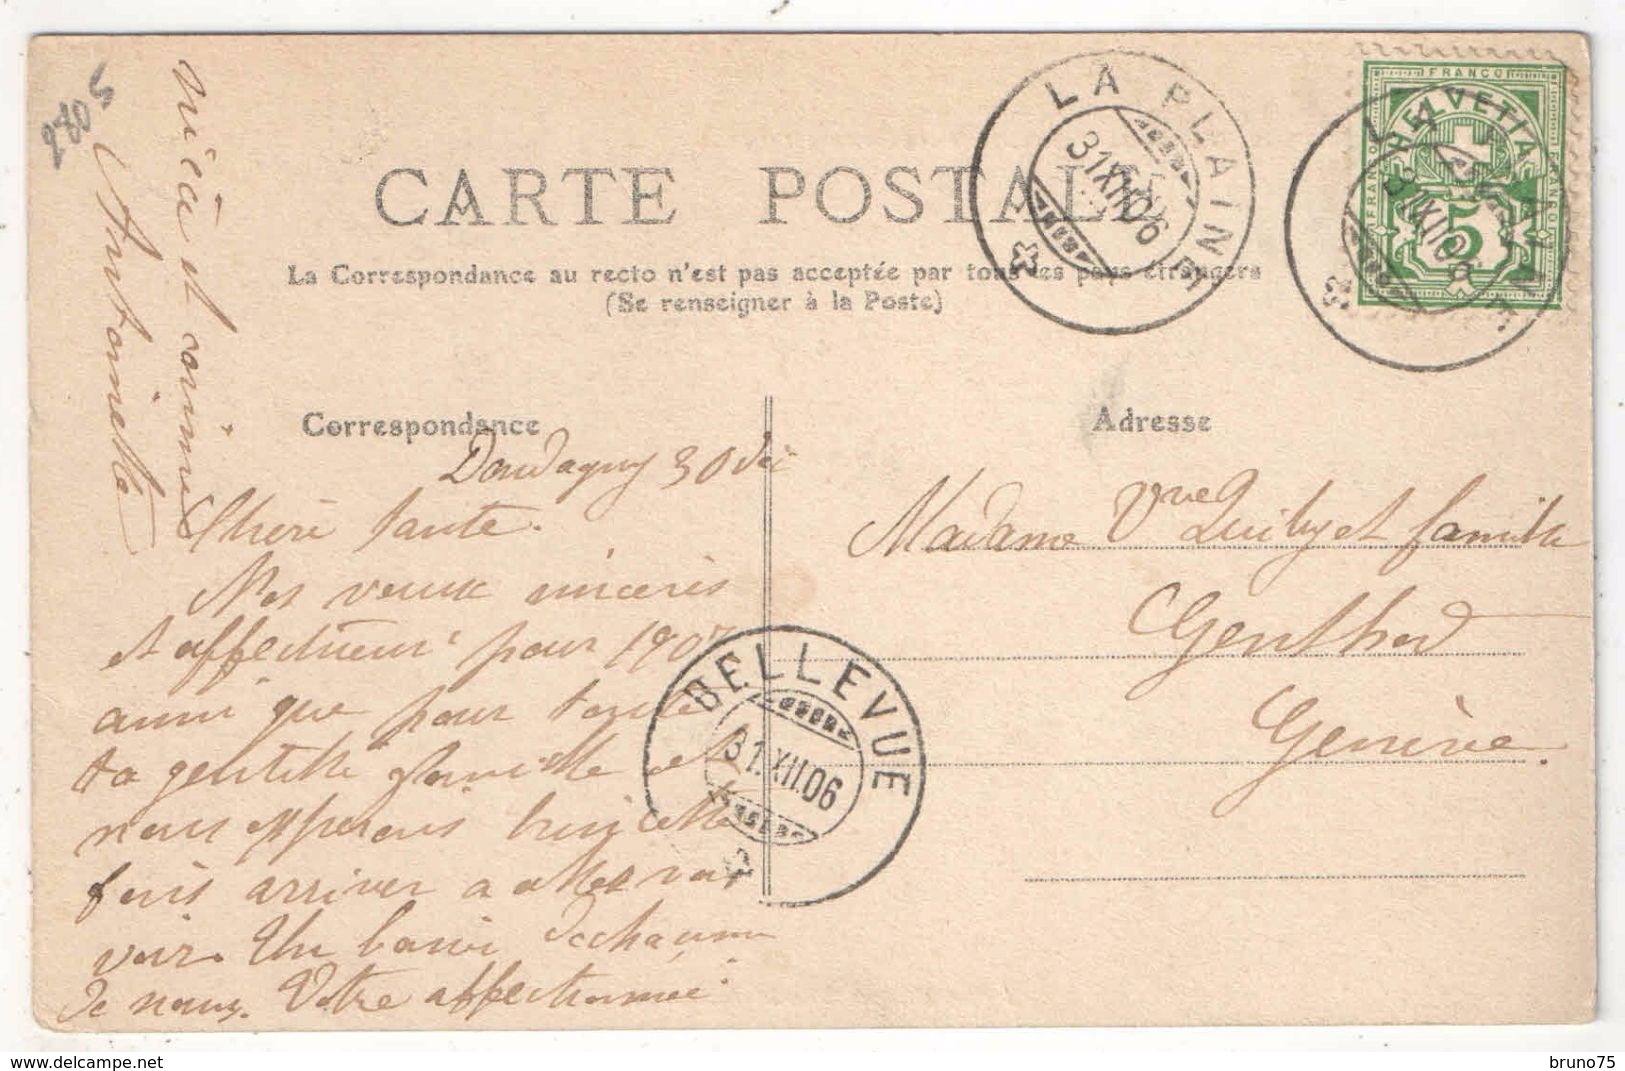 2805
CARTE POSTALE
La Correspondance au recto n'est pas acceptée par tous les pays étrangers
(Se renseigner à la Poste)
LA PLAINE
31.XII.06
FRANCO
HELVETIA
FRANCO
FRANCO
5
LA PLAINE
31.XII.06
Correspondance
Adresse
Dardagny 30 Déc
Chère tante.
Mes veux sincères
et affectueux pour 1907
ainsi que pour toute
ta gentille famille et
nous esperons bien cette
fois arriver a aller vous
voir. Un baiser de chacun
de nous. Votre affectionnée
nièce et cousine
Antoinette
Madame Vve et famille
Genthod
Genève.
BELLEVUE
31.XII.06
bruno75